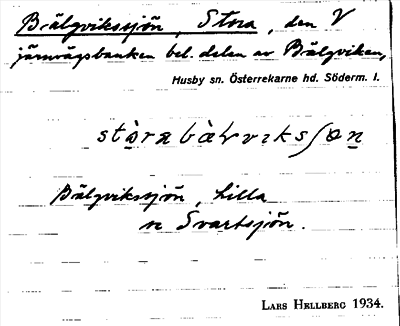 Bälgvikssjön, Stora, den V
järnvägsbanken bel. delen av Bälgviken,
Husby sn. Österrekarne hd. Söderm. l.
Bälgvikssjön, Lilla
se Svartsjön.
LARS HELLBERG 1934.